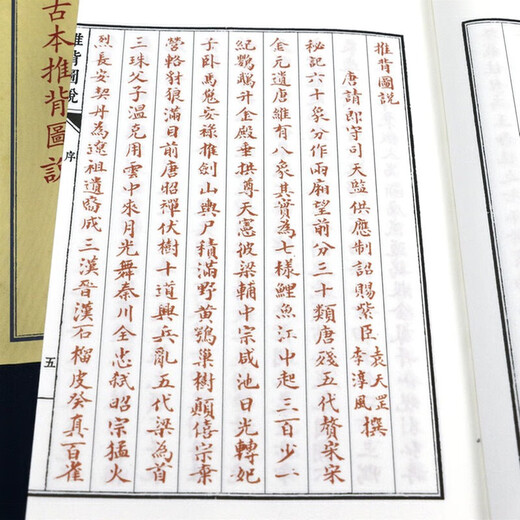 推背圖説
唐請郎守司天監供應制詔賜紫臣袁天罡李淳風撰
秘記六十象分作兩廂望前分三十類唐殘五代贅宋宋
金元遺唐維有八象其實為七樣鯉魚江中起三百少一
紀鸚鵡升金殿垂拱尊天憲彼梁輔中宗咸池日光轉妃
子卧馬嵬安祿推劍山輿尸積滿野黄鶚巢樹顛僖宗棄
營輅豺狼滿目前唐昭禪伏樹十道興兵亂五代梁為首
三珠父子溫克用雲中來月光舞秦川全忠弑昭宗猛火
烈長安契丹為遼祖遺裔成三漢晉漢石榴皮發真百雀
推背圖說
序
五
古本推背圖說